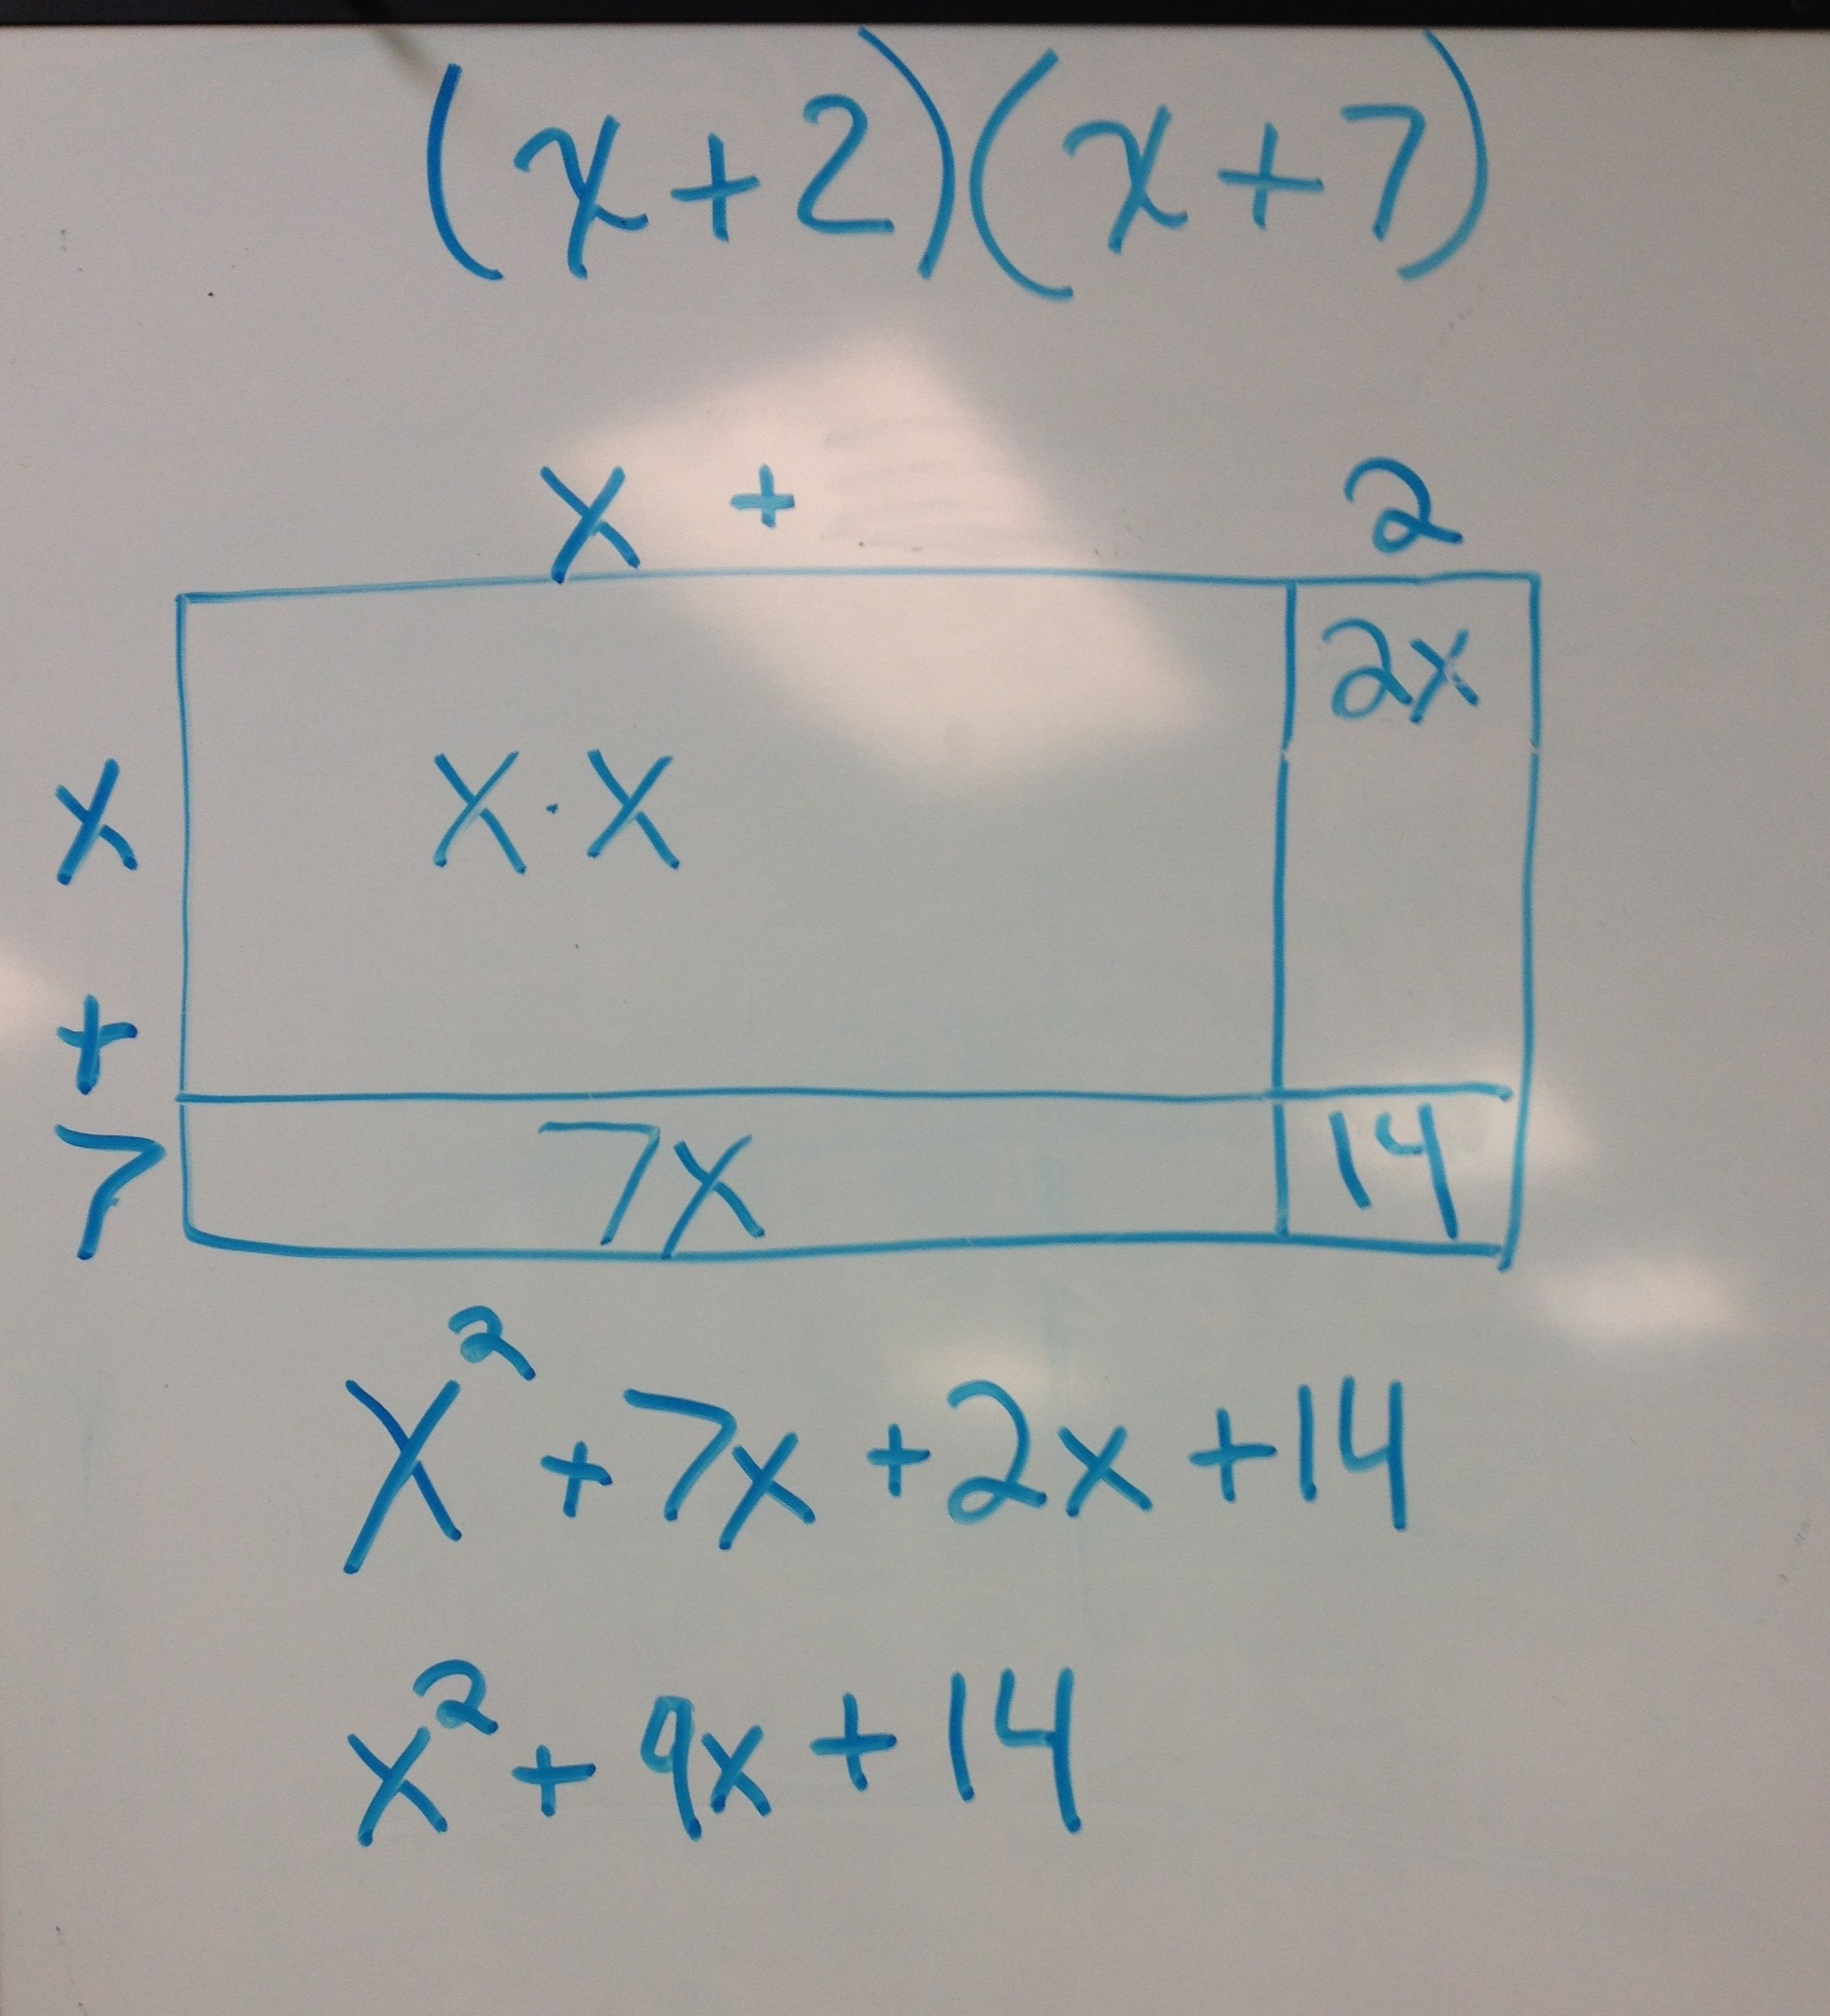 (x+2)(x+7)
x + 2
2x
x x·x
+
7 7x 14
x²+7x+2x+14
x²+9x+14